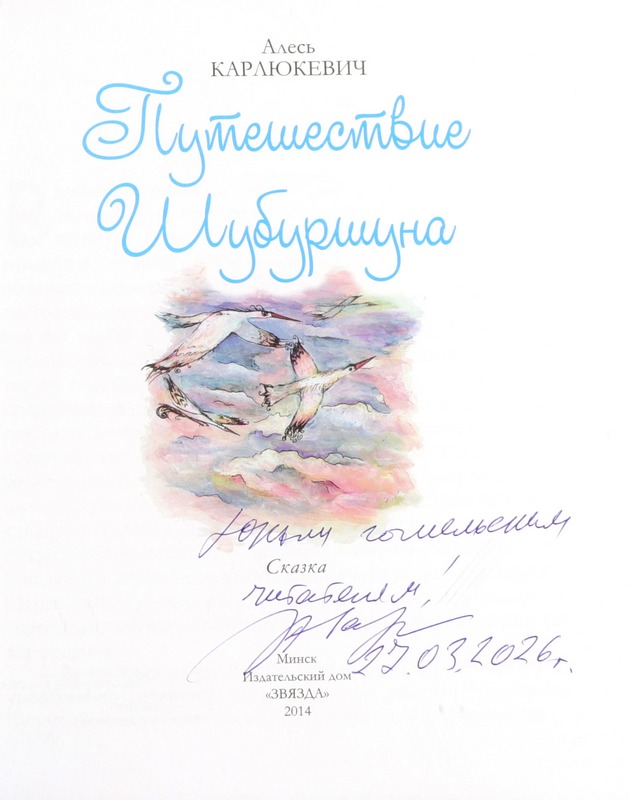 Алесь
КАРЛЮКЕВИЧ
Путешествие
Шубуршуна
Юным гомельским
Сказка
читателям!
Минск
27.03.2026 г.
Издательский дом
«ЗВЯЗДА»
2014